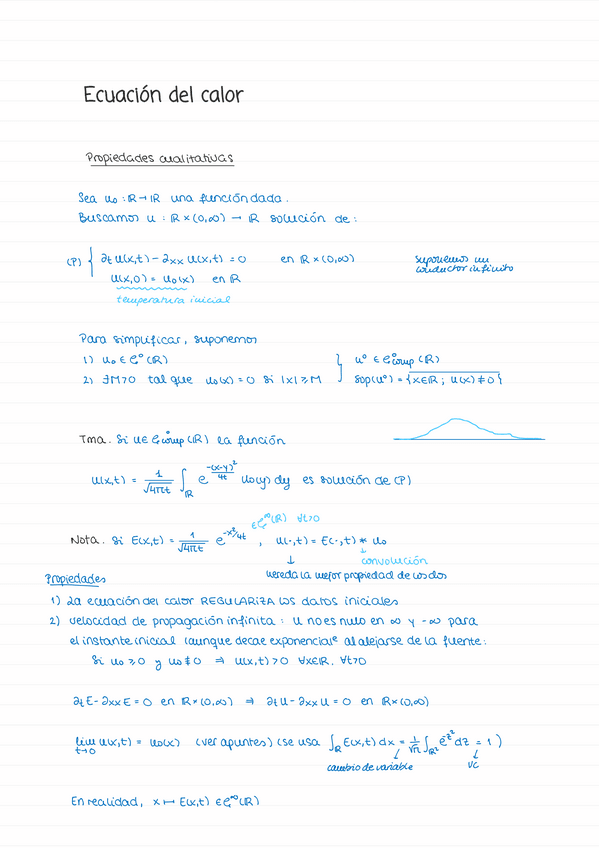 Ecuación del calor
Propiedades cualitativas
Sea u₀ : ℝ → ℝ una función dada.
Buscamos u : ℝ × (0,∞) → ℝ solución de :
(P) { ∂t u(x,t) - ∂xx u(x,t) = 0 en ℝ × (0,∞) suponemos un conductor infinito
u(x,0) = u₀(x) en ℝ
temperatura inicial
Para simplificar, suponemos
1) u₀ ∈ C⁰(ℝ) } u⁰ ∈ C⁰comp (ℝ)
2) ∃M>0 tal que u₀(x) = 0 si |x| ≥ M sop(u⁰) = {x∈ℝ ; u(x) ≠ 0}
Tma. Si u ∈ C⁰comp (ℝ) la función
u(x,t) = 1/√4πt ∫ℝ e^(-(x-y)²/4t) u₀(y) dy es solución de (P)
∈ C^∞(ℝ) ∀t>0
Nota. Si E(x,t) = 1/√4πt e^(-x²/4t) , u(·,t) = E(·,t) * u₀
↓ ↓ convolución
hereda la mejor propiedad de los dos
Propiedades
1) La ecuación del calor REGULARIZA los datos iniciales
2) Velocidad de propagación infinita : u no es nulo en ∞ y -∞ para
el instante inicial (aunque decae exponencial^e al alejarse de la fuente:
Si u₀ ≥ 0 y u₀ ≢ 0 ⇒ u(x,t) > 0 ∀x∈ℝ, ∀t>0
∂t E - ∂xx E = 0 en ℝ × (0,∞) ⇒ ∂t u - ∂xx u = 0 en ℝ × (0,∞)
lim t→0 u(x,t) = u₀(x) (ver apuntes) (se usa ∫ℝ E(x,t) dx = 1/√π ∫ℝ² e^-z² dz = 1 )
cambio de variable VC
En realidad, x ↦ E(x,t) ∈ C^∞(ℝ)